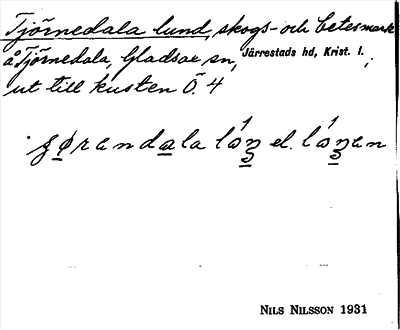 Tjörnedala lund, skogs- och betesmark
å Tjörnedala, Gladsax sn, Järrestads hd, Krist. l.,
ut till kusten Ö. 4
NILS NILSSON 1931